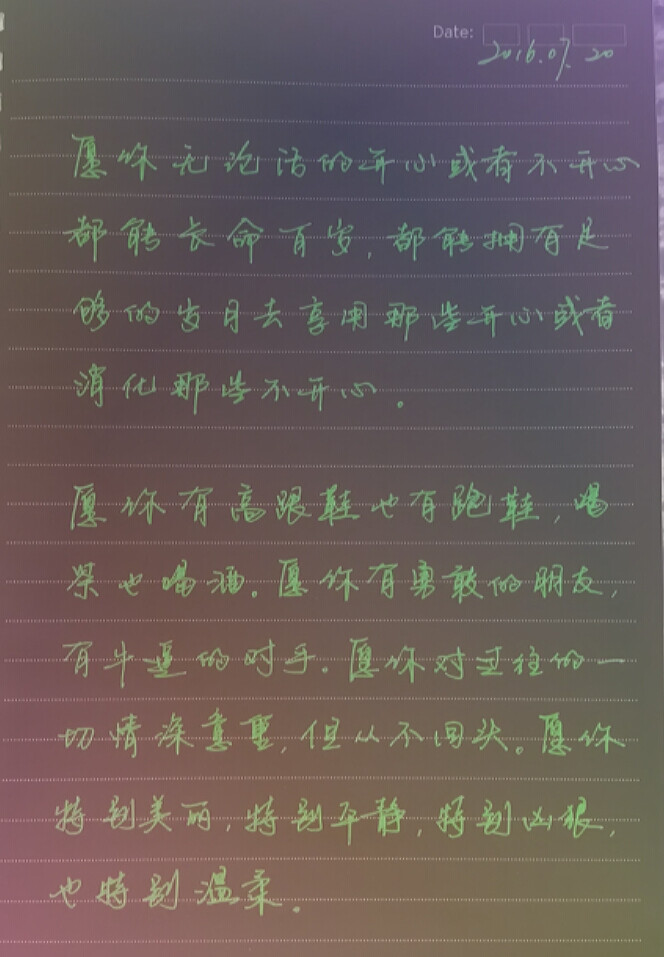 Date:
2016.07.20
愿你无论活的开心或者不开心
都能长命百岁，都能拥有足
够的岁月去享用那些开心或者
消化那些不开心。
愿你有高跟鞋也有跑鞋，喝
茶也喝酒。愿你有勇敢的朋友，
有牛逼的对手。愿你对过往的一
切情深意重，但从不回头。愿你
特别美丽，特别平静，特别凶狠，
也特别温柔。